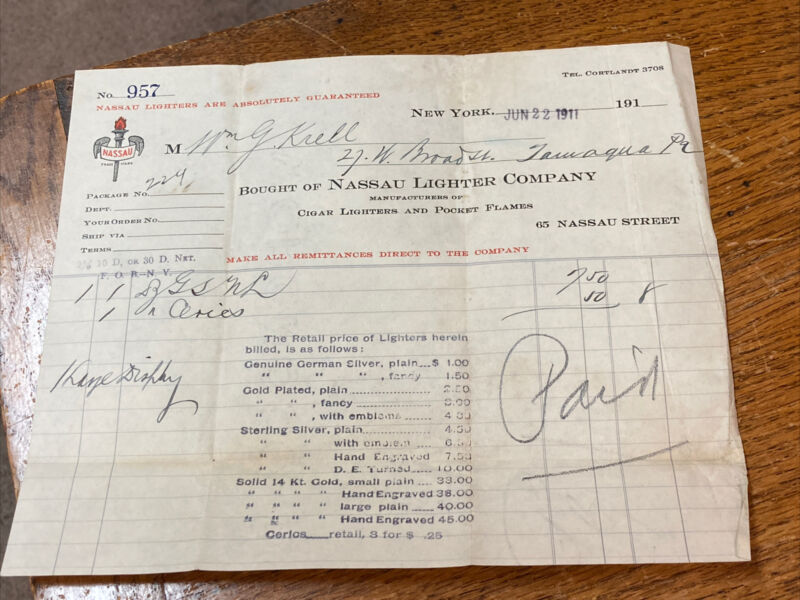 No. 957
TEL. CORTLANDT 3708
NASSAU LIGHTERS ARE ABSOLUTELY GUARANTEED
NEW YORK, JUN 22 1911 191
NASSAU
TRADE MARK
M Wm G. Krell
27. W. Broad St. Tamaqua Pa
PACKAGE NO. 224
BOUGHT OF NASSAU LIGHTER COMPANY
DEPT.
MANUFACTURERS OF
YOUR ORDER NO.
CIGAR LIGHTERS AND POCKET FLAMES
SHIP VIA
65 NASSAU STREET
TERMS
10 D, OR 30 D. NET.
MAKE ALL REMITTANCES DIRECT TO THE COMPANY
F. O. B.-N. Y.
1 1 GS NL 7 50
1 " Ceries 50 8
The Retail price of Lighters herein
billed, is as follows:
Genuine German Silver, plain...$ 1.00
" " " , fancy 1.50
Gold Plated, plain 2.50
" " , fancy 3.00
" " , with emblems 4.00
Sterling Silver, plain 4.50
" " with emblem 6.50
" " Hand Engraved 7.50
" " D. E. Turned 10.00
Solid 14 Kt. Gold, small plain 33.00
" " " " Hand Engraved 38.00
" " " " large plain 40.00
" " " " Hand Engraved 45.00
Cerios retail, 3 for $ .25
1 Large Display
Paid